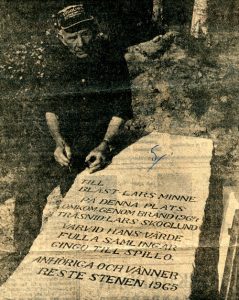 TILL
BLÄST LARS MINNE
PÅ DENNA PLATS
OMKOM GENOM BRAND 1964
TRÄSNID. LARS SKOGLUND
VARVID HANS VÄRDE
FULLA SAMLINGAR
GINGO TILL SPILLO.
ANHÖRIGA OCH VÄNNER
RESTE STENEN 1965